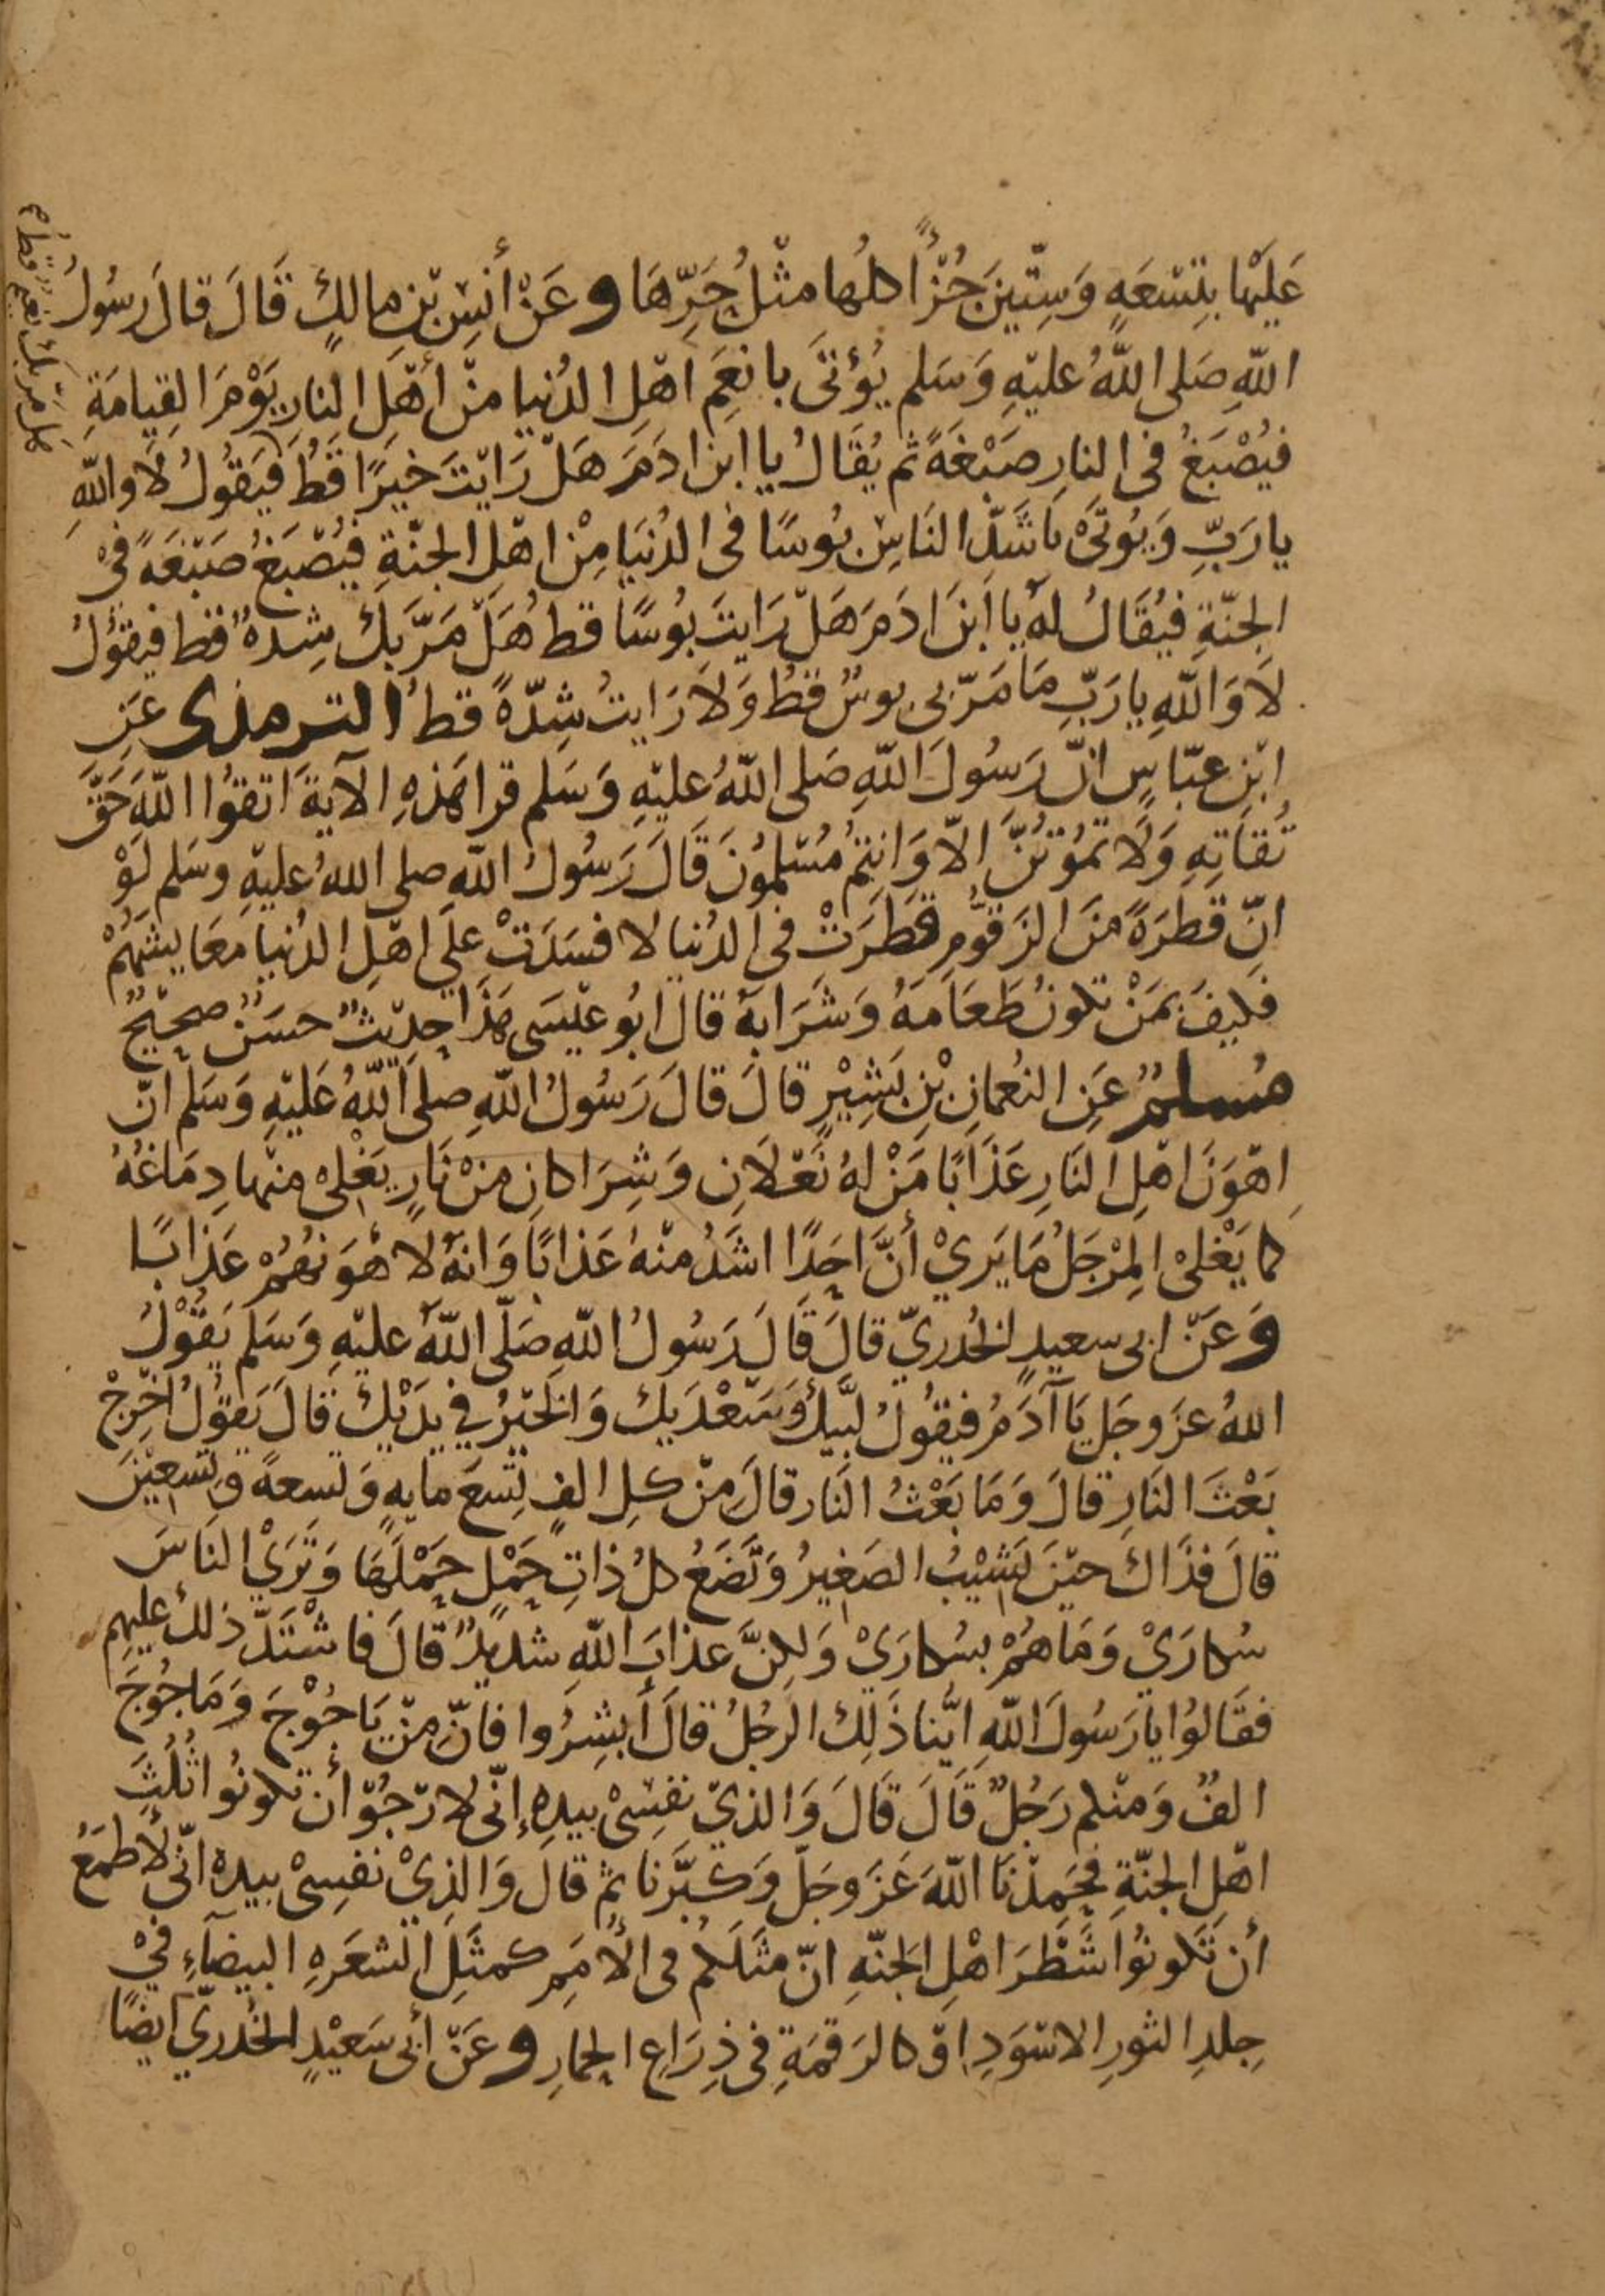 عَلَيْها بِتِسْعَهٍ وَسِتّينَ جُزْأً كلُها مثْلُ حَرِّهَا وعَنْ أنسِ بْنِ مالكٍ قَالَ قالَ رسُولُ
اللّهِ صَلى اللّهُ عليْهِ وَسَلم يُؤتَى بانعَمِ اهْلِ الدُنيا منْ أهْلِ النارِ يَوْمَ القِيامَةِ
فيُصْبَغُ فى النارِ صَبْغَةً ثم يُقَالُ يا ابنَ ادَمَ هَلْ رَايْتَ خيَرًا قَطُ فَيَقُولُ لَا واللّهِ
يا رَبِّ وَيُوتَىْ بَاشَدِّ النَاسِ بُوسًا فى الدُنيَا مِنْ اهْلِ الجنّةِ فيُصْبَغُ صَبْغَةً فىْ
الجنّةِ فيُقَالُ لهُ يا ابنَ ادَمَ هَلْ رَايتَ بُوسًا قط هَلْ مَرَّ بَكَ شِدهٌ قط فيقُولُ
لاَ وَاللّهِ يا رَبِّ مَا مَرّ بى بوسٌ قطُ وَلاَ رَايتُ شِدّةً قطُ الترمذى عَنِ
ابْنِ عبّاسٍ انّ رَسُولَ اللّهِ صَلى اللّهُ عليْهِ وَسَلم قرا هَذِهِ الآيةَ اتقوُا اللّهَ حَقَّ
تُقَاتِهِ وَلَا تمُوُتُنَّ الاّ وَانتمُ مُسْلمُونَ قَالَ رَسُولُ اللّهِ صلى اللهُ عليْهِ وسَلم لَوْ
انّ قطرَةً منَ الزَقوُّمِ قطَرَتْ فى الدُنيا لافسَدَتْ علَى اهْلِ الدُنيا معَايشَهُمْ
فكيفَ بمَنْ تكونُ طَعَامَهُ وَشَرَابهُ قالَ ابُو عيْسَى هَذا حديْثٌ حسَنٌ صحيْحٌ
مُسلمٌ عَنِ النعُمانِ بْنِ بَشِيْرٍ قالَ قالَ رَسُولُ اللّهِ صلى اللّهُ عَليْهِ وَسَلم انّ
اهْوَنَ اهْلِ النَارِ عَذَابًا مَنْ لهُ نَعْلَانِ وَشِرَاكانِ منْ نَارٍ يَغْلىْ منْها دِمَاغُهُ
كما يَغْلىْ المِرْجَلُ مَا يَرىْ أنَّ احَدًا اشَدُ منْهُ عَذابًا وَانهُ لاَهْوَنهُمْ عَذابًا
وَعَنْ ابى سعيدٍ الخُدرىّ قالَ قَالَ رَسُولُ اللّهِ صَلّى اللّهُ عليْهِ وَسَلم يَقوْلُ
اللهُ عزَ وجَل يَا آدَمُ فيقُولُ لبَّيكَ وَسَعْدَيكَ وَالخَيْرُ فى يدَيْكَ قالَ يَقوُلُ اخْرِجْ
بَعْثَ النَارِ قالَ وَمَا بَعْثُ النَار قالَ منْ كلِ الفٍ تِسعَ مايهٍ وَتسعةً وتسعيْنَ
قالَ فذَاكَ حيْنَ يَشيْبُ الصَغيرُ وَتَضَعُ كلُ ذاتِ حَمْلٍ حَمْلَهَا وَتَرَىْ النَاسَ
سُكارَىْ وَمَا هُمْ بسُكارَىْ وَلكِنَّ عذابَ اللّهِ شديدٌ قالَ فاشْتَدّ ذلكَ عليهم
فقَالوُا يا رَسُولَ اللّهِ ايُّنا ذَلِكَ الرجُلُ قالَ أبشِرُوا فانّ منْ يَاجُوْجَ وَمَاجُوجَ
الفٌ وَمنْكم رَجُلٌ قَالَ قَالَ وَالذىْ نفسِىْ بيدِهِ إنّى لارْجُوْ أن تكونُوا ثُلُثَ
اهْلِ الجنّةِ فحَمِدْنَا اللّهَ عَزَ وجَلّ وَكبَّرنا ثم قالَ وَالذِىْ نفسِىْ بيدهِ انّى لَأطمَعُ
أن تَكونُوا شَطْرَ اهْلِ الجَنّهِ انّ مثَلَكمُ فى الأُمَمِ كمثَلِ الشعَرهِ البيضَآءِ فىْ
جِلدِ الثورِ الاسْوَدِ اوْ كالرَقمَةِ فى ذِرَاعِ الحِمارِ وعَنْ أبى سَعيْدٍ الخُدرىّ ايضًا